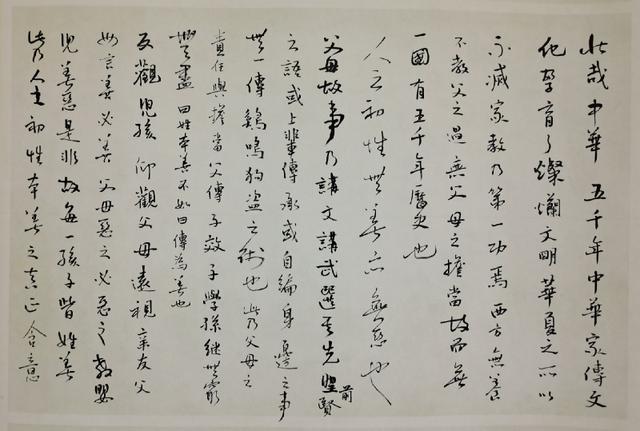 壯哉中華五千年中華家傳文
化孕育了燦爛文明華夏之所以
不滅家教乃第一功焉西方無養
不教父之過無父母之擔當故而無
一國有五千年曆史也
人之初性無善亦無惡也
父母故事乃講文講武選其先聖前賢
之語或上輩傳承或自編身邊之事
無一傳鷄鳴狗盜之術也此乃父母之
責任與擔當父傳子效子學孫繼無窮
無盡曰姓本善不如曰傳為善也
反觀兒孩仰觀父母遠視親友父
母言善必善父母惡之必惡之教嬰
兒善惡是非故每一孩子皆姓善
此乃人之初性本善之真正含意